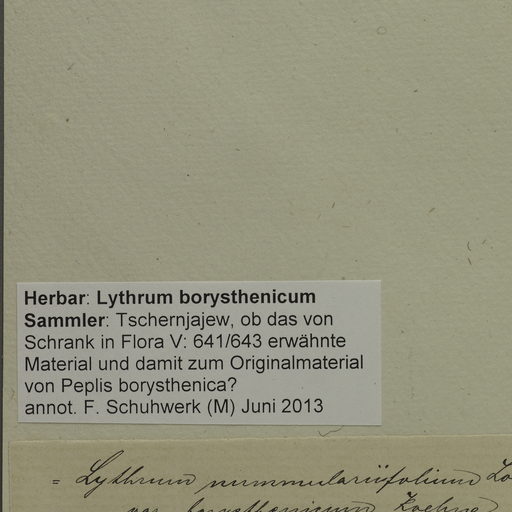 Herbar: Lythrum borysthenicum
Sammler: Tschernjajew, ob das von
Schrank in Flora V: 641/643 erwähnte
Material und damit zum Originalmaterial
von Peplis borysthenica?
annot. F. Schuhwerk (M) Juni 2013
= Lythrum nummulariifolium Lo
var. borysthenicum Koehne